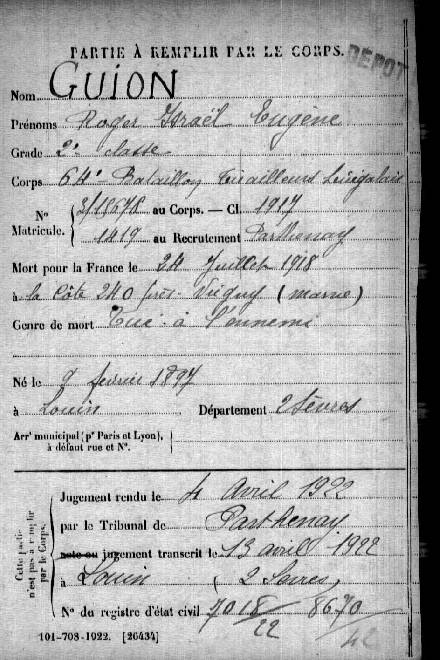 PARTIE À REMPLIR PAR LE CORPS.
DÉPÔT
Nom GUION
Prénoms Roger Israël Eugène
Grade 2e classe
Corps 64e Bataillon Tirailleurs Sénégalais
N° Matricule. { 3/18678 au Corps. — Cl. 1917
1419 au Recrutement Parthenay
Mort pour la France le 24 Juillet 1918
à la Côte 240 près Vrigny (Marne)
Genre de mort Tué à l'ennemi
Né le 9 février 1897
à Louin Département 2 Sèvres
Arrt municipal (pr Paris et Lyon),
à défaut rue et N°.
Cette partie n'est pas à remplir par le Corps.
Jugement rendu le 4 Avril 1922
par le Tribunal de Parthenay
acte ou jugement transcrit le 13 avril 1922
à Louin (2 Sèvres)
N° du registre d'état civil 7018/22 8670/42
101-708-1922. [26434]